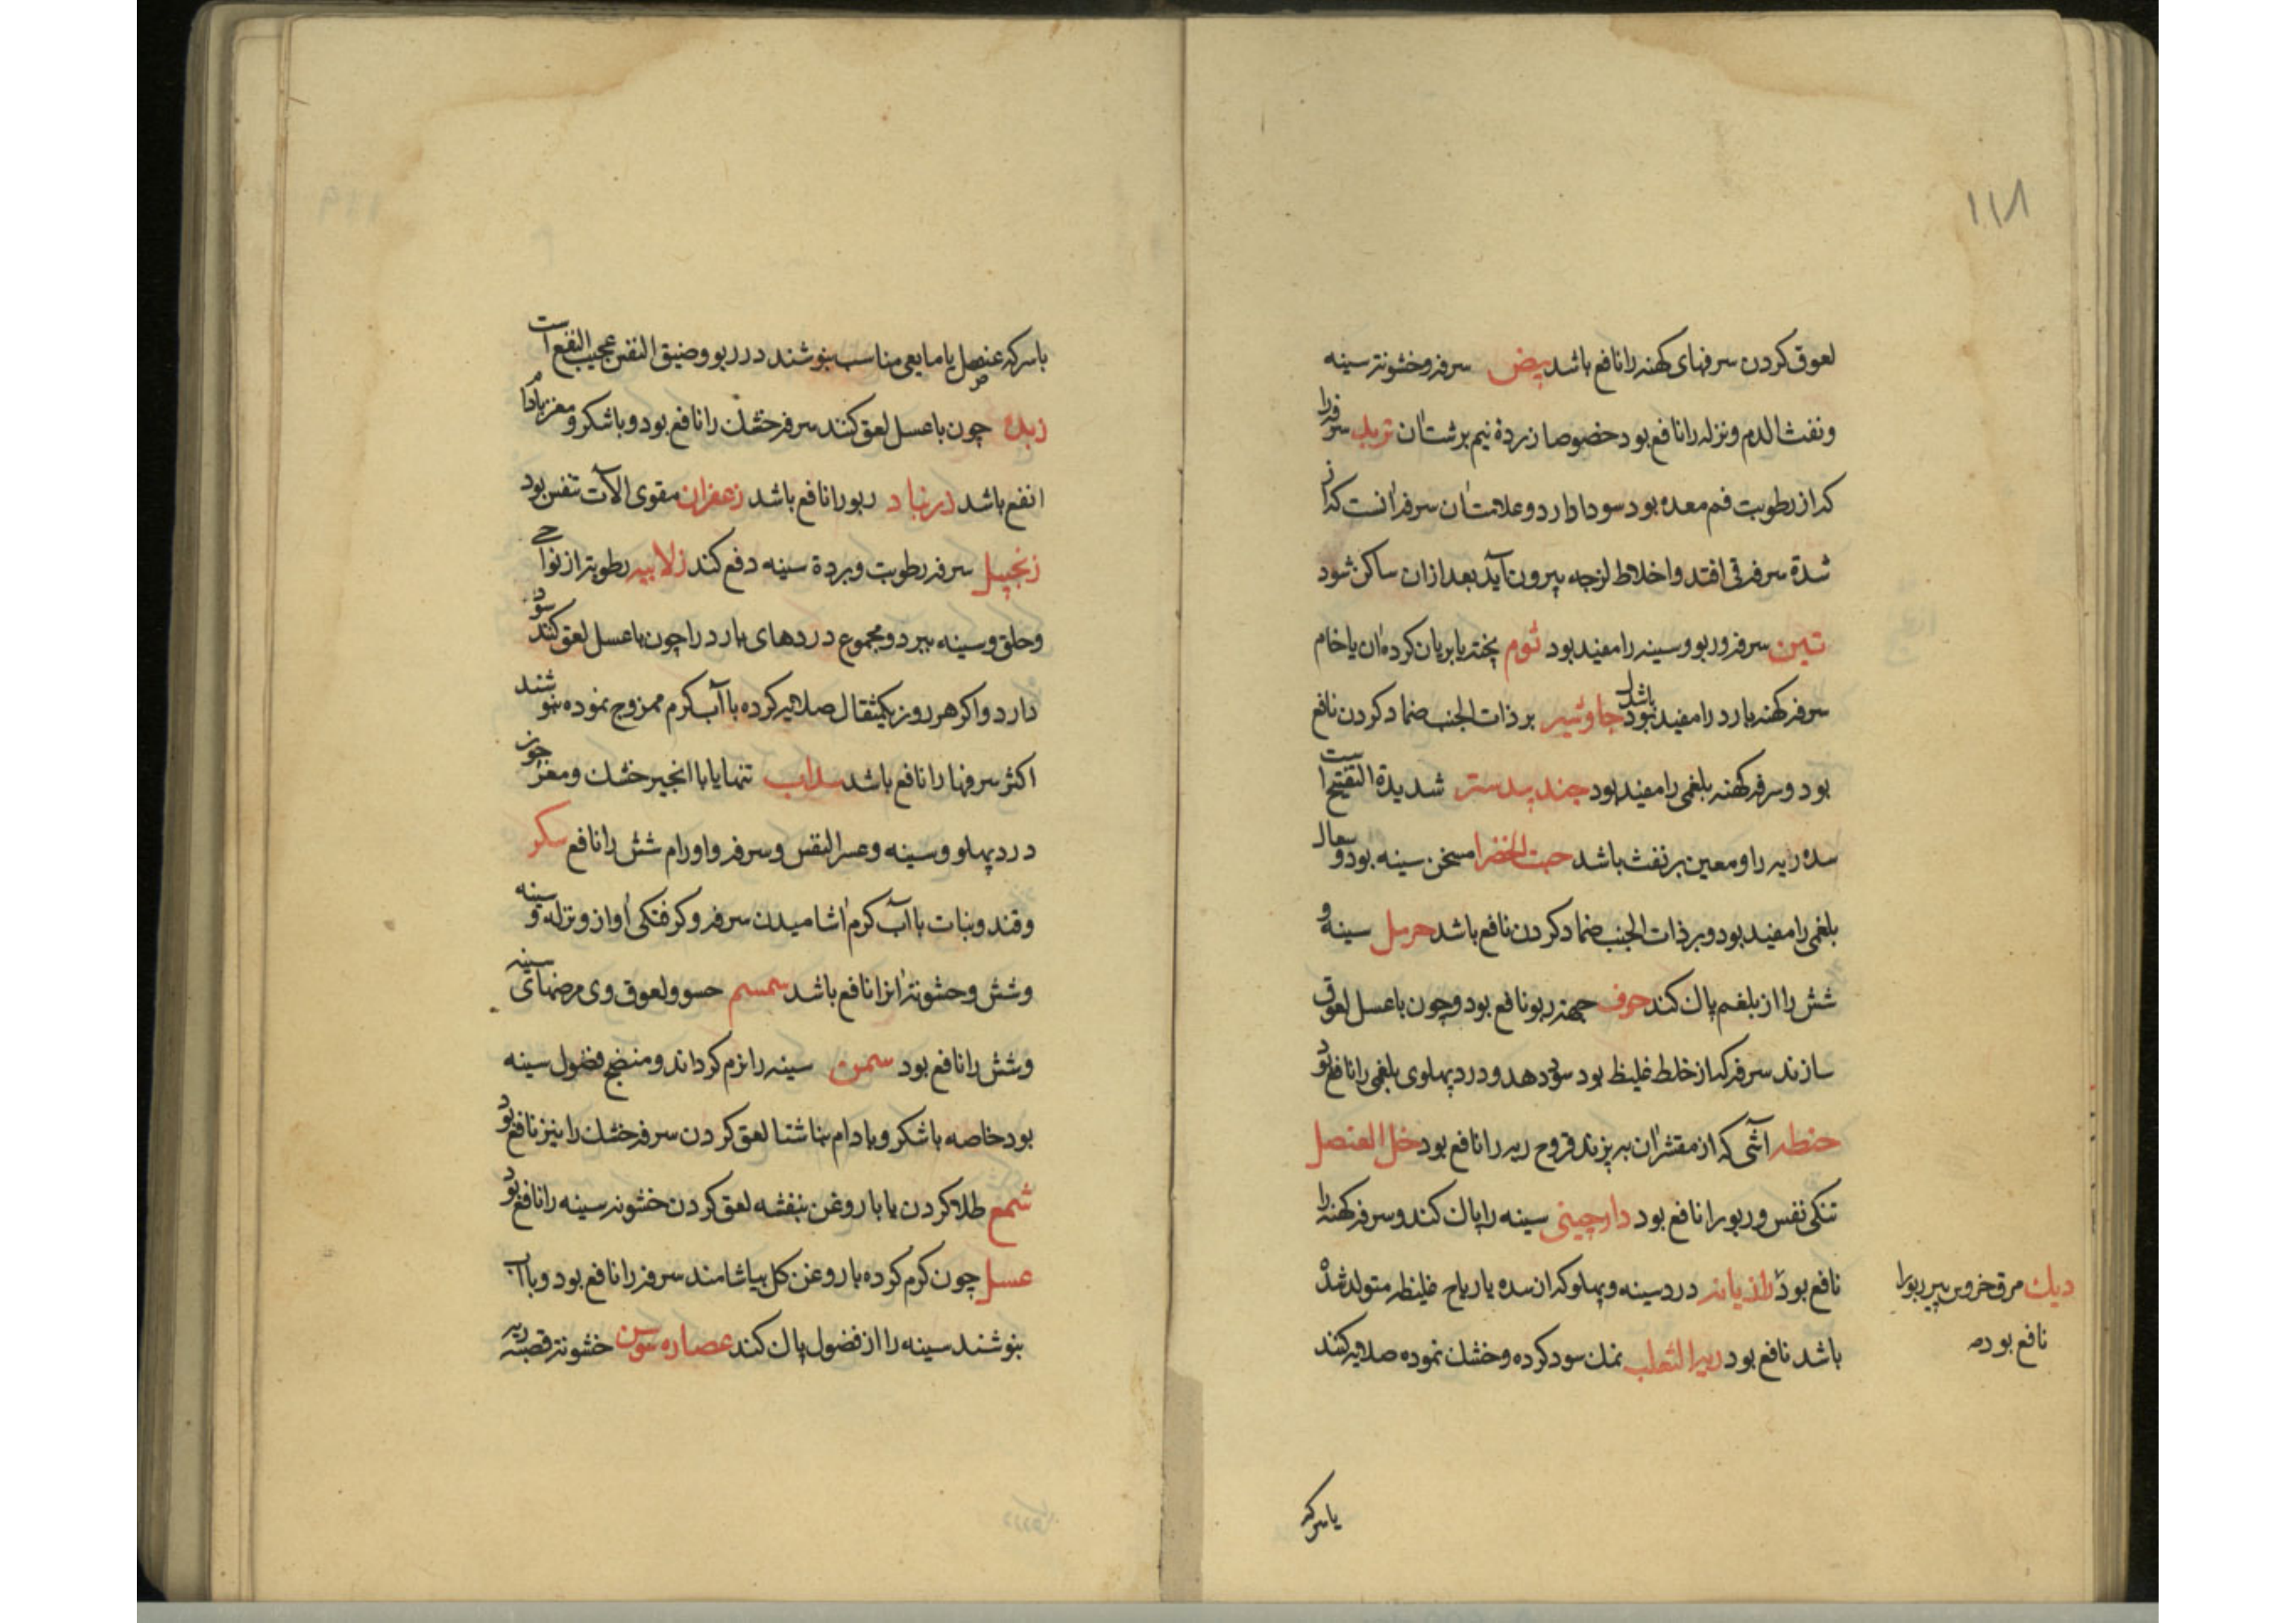 ۱۱۸
لعوق کردن سرفهای کهنه را نافع باشد بیض سرفه و خشونة سینه
و نفث الدم و نزله را نافع بود خصوصا زردهٔ نیم برشت آن تربد سرفه را
که از رطوبت فم معده بود سود دارد و علامت آن سرفه آنست که از
شدة سرفه قی افتد و اخلاط لزجه بیرون آید بعد از آن ساکن شود
تین سرفه و ربو و سینه را مفید بود ثوم پخته یا بریان کرده آن یا خام
سرفه کهنه بارد را مفید بود جاوشیر بر ذات الجنب ضماد کردن نافع
بود و سرفه کهنه بلغمی را مفید بود جند بیدستر شدیدة التفتیح است
سده ریه را و معین بر نفث باشد حبت الخضرا مسخن سینه بود و سعال
بلغمی را مفید بود و بر ذات الجنب ضماد کردن نافع باشد حرمل سینه و
شش را از بلغم پاک کند حرف جهة ربو نافع بود و چون با عسل لعوق
سازند سرفه که از خلط غلیظ بود سود دهد و درد پهلوی بلغمی را نافع بود
حنطه آشی که از مقشر آن بپزند قروح ریه را نافع بود خل العنصل
تنکی نفس و ربو را نافع بود دارچینی سینه را پاک کند و سرفه کهنه را
نافع بود رازیانه درد سینه و پهلو که از سده یا ریاح غلیظه متولد شده
باشد نافع بود ریة الثعلب نمک سود کرده و خشک نموده صلایه کنند
دیک مرق خروس پیر ربو را
نافع بود
یا سرکه
با سرکه عنصل یا مایعی مناسب بنوشند در ربو و ضیق النفس عجیب النفع است
زبده چون با عسل لعق کنند سرفه خشک را نافع بود و با شکر و مغز بادام
انفع باشد زرنباد ربو را نافع باشد زعفران مقوی آلات تنفس بود
زنجبیل سرفه رطوبت و بردة سینه دفع کند زلابیه رطوبة از نواحی
و حلق و سینه ببرد و مجموع دردهای بارد را چون با عسل لعق کنند سود
دارد و اکر هر روز یکمثقال صلایه کرده با آب کرم ممزوج نموده بنوشند
اکثر سرفها را نافع باشد سداب تنها یا با انجیر خشک و مغز جوز
درد پهلو و سینه و عسر النفس و سرفه و اورام شش را نافع سکر
و قند و نبات با آب کرم آشامیدن سرفه و کرفتکی آواز و نزله و سینه
و شش و خشونة آنرا نافع باشد سمسم حسو و لعوق وی مرضهای سینه
و شش را نافع بود سمن سینه را نرم کرداند و منضج فضول سینه
بود خاصه با شکر و بادام بناشتا لعق کردن سرفه خشک را نیز نافع بود
شمع طلا کردن یا با روغن بنفشه لعق کردن خشونه سینه را نافع بود
عسل چون کرم کرده با روغن کل بیاشامند سرفه را نافع بود و با آب
بنوشند سینه را از فضول پاک کند عصاره سوس خشونة قصبه ریه